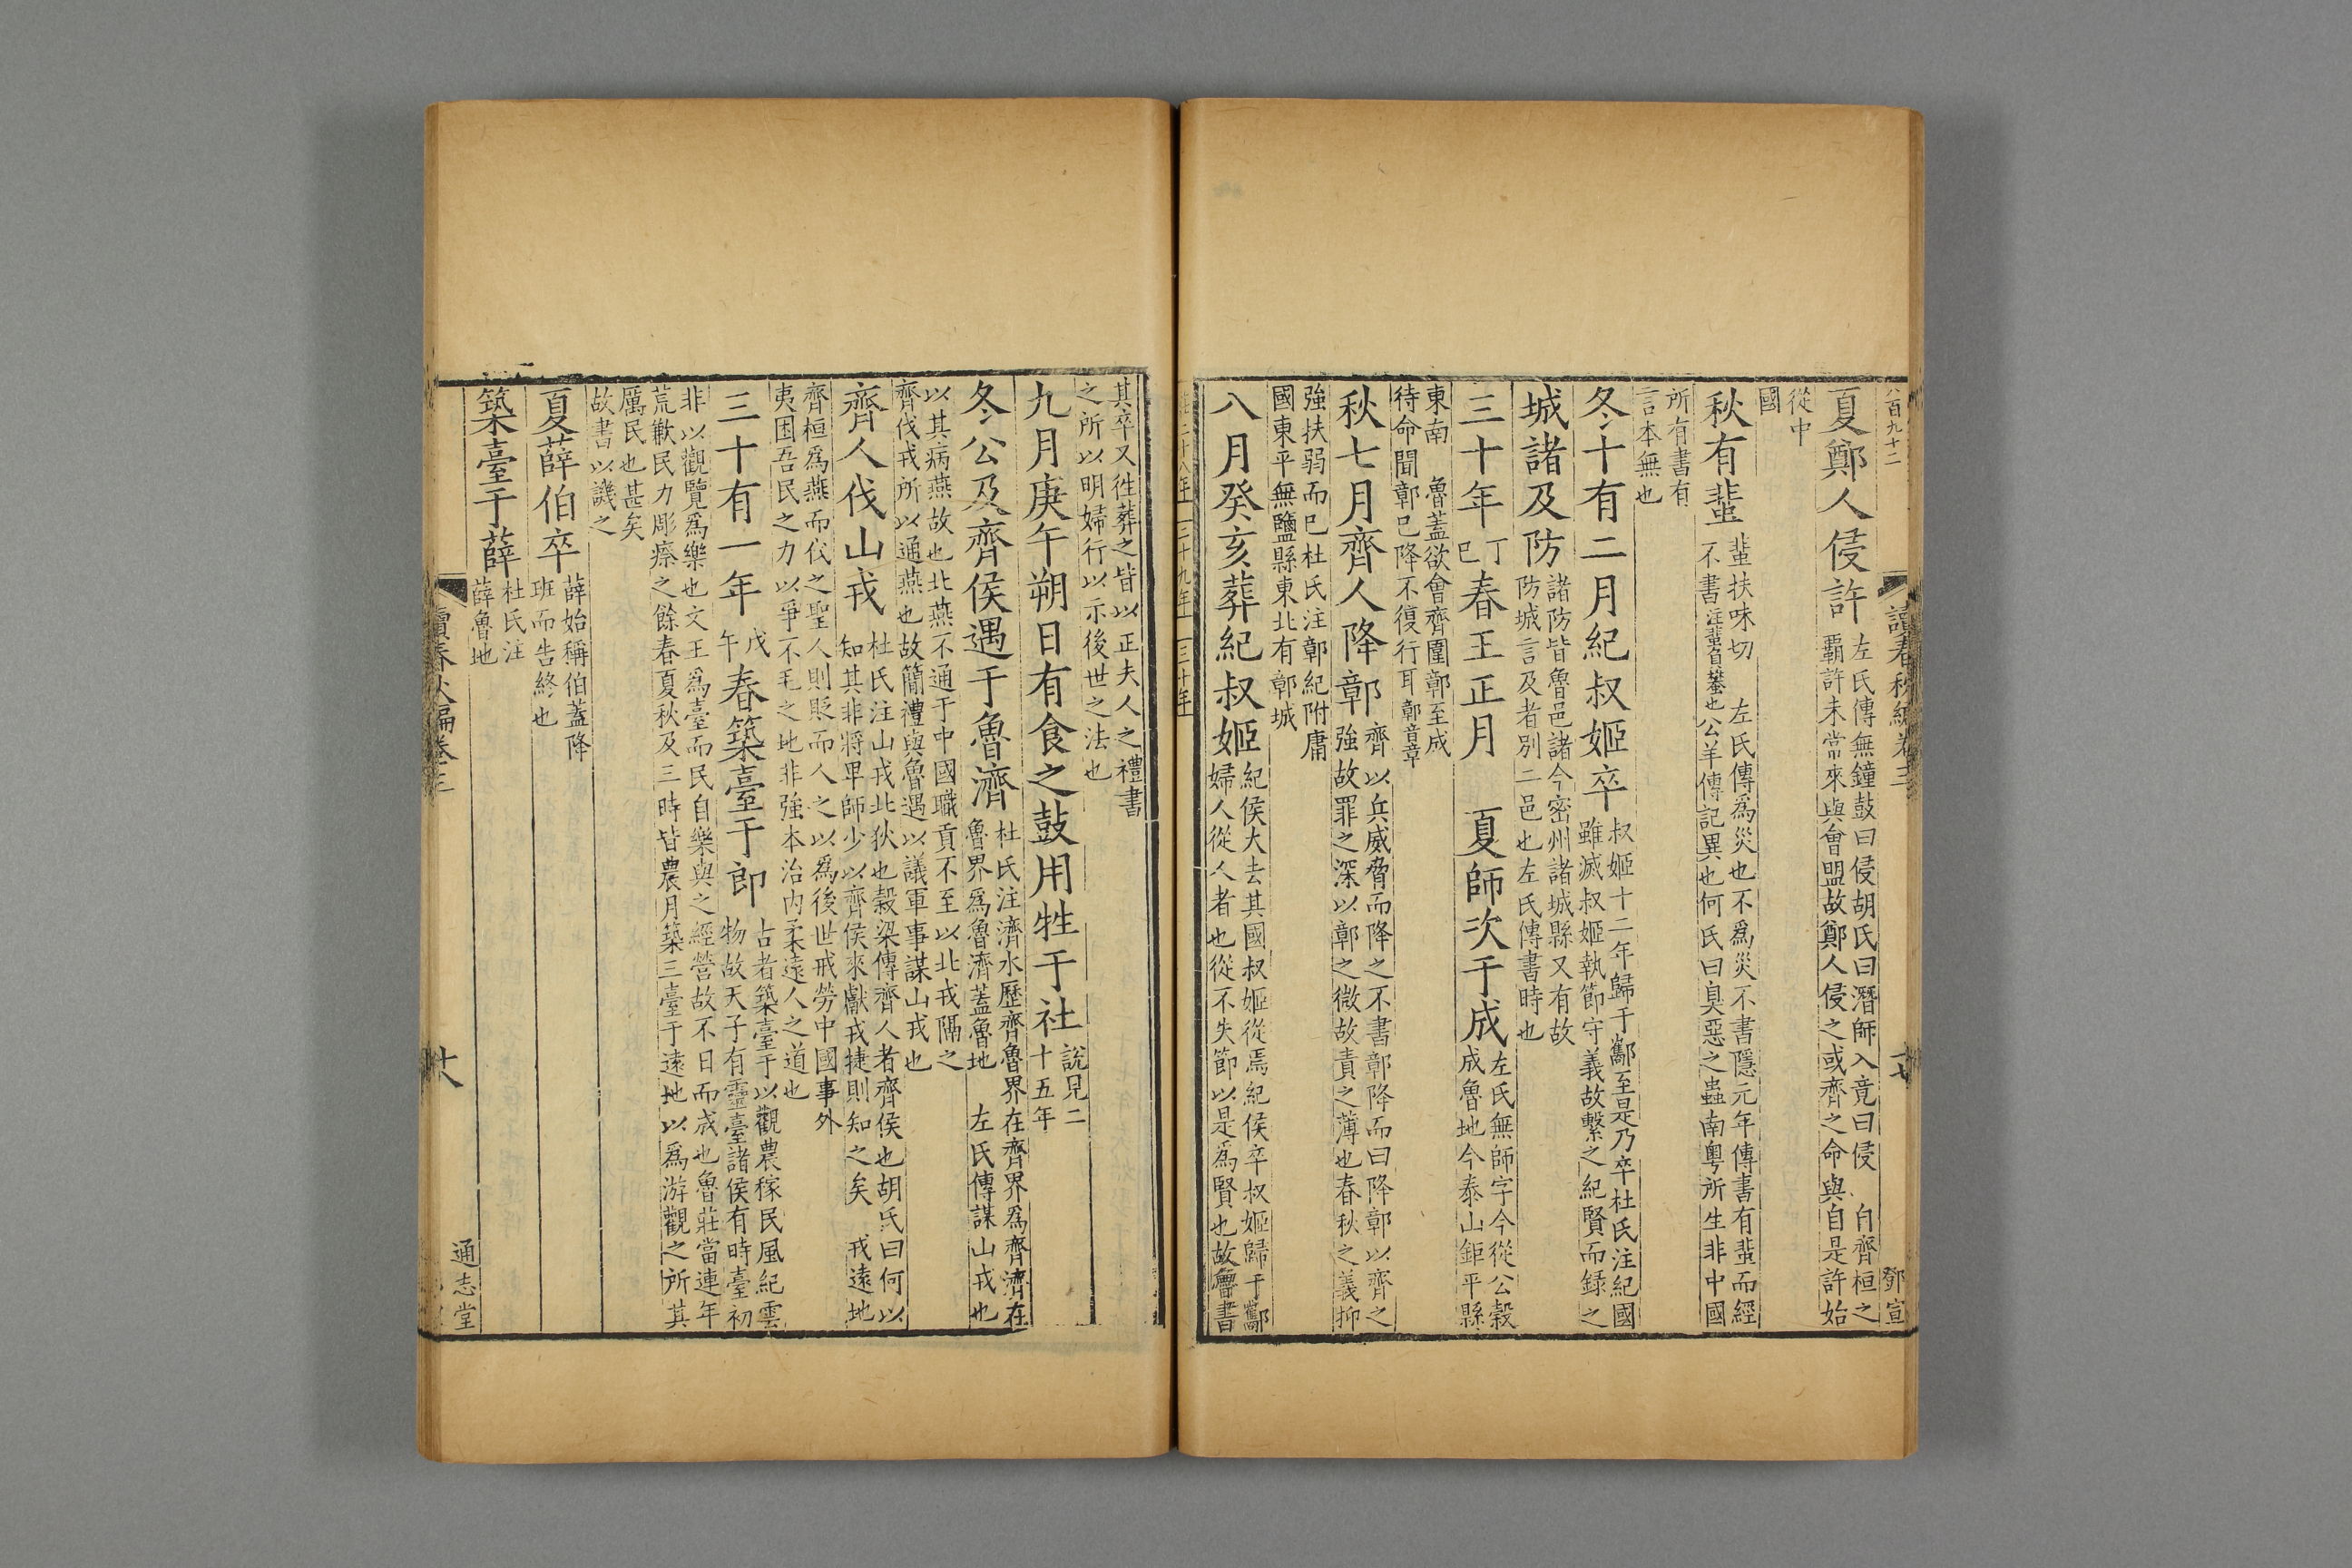 夏鄭人侵許 左氏傳無鐘鼓曰侵胡氏曰潛師入竟曰侵 自齊桓之
霸許未常來與會盟故鄭人侵之或齊之命與自是許始
從中
國
秋有蜚 蜚扶味切 左氏傳爲災也不爲災不書隱元年傳書有蜚而經
不書注蜚負蠜也公羊傳記異也何氏曰臭惡之蟲南粵所生非中國
所有書有
言本無也
冬十有二月紀叔姬卒 叔姬十二年歸于酅至是乃卒杜氏注紀國
雖滅叔姬執節守義故繫之紀賢而録之
城諸及防 諸防皆魯邑諸今密州諸城縣又有故
防城言及者別二邑也左氏傳書時也
三十年 丁巳 春王正月 夏師次于成 左氏無師字今從公穀
成魯地今泰山鉅平縣
東南 魯蓋欲會齊圍鄣至成
待命聞鄣已降不復行耳 鄣音章
秋七月齊人降鄣 齊以兵威脅而降之不書鄣降而曰降鄣以齊之
強故罪之深以鄣之微故責之薄也春秋之義抑
強扶弱而已杜氏注鄣紀附庸
國東平無鹽縣東北有鄣城
八月癸亥葬紀叔姬 紀侯大去其國叔姬從焉紀侯卒叔姬歸于酅
婦人從人者也從不失節以是爲賢也故魯書
其卒又往葬之皆以正夫人之禮書
之所以明婦行以示後世之法也
九月庚午朔日有食之鼓用牲于社 說見二
十五年
冬公及齊侯遇于魯濟 杜氏注濟水歷齊魯界在齊界爲齊濟在
魯界爲魯濟蓋魯地 左氏傳謀山戎也
以其病燕故也北燕不通于中國職貢不至以北戎隔之
齊伐戎所以通燕也故簡禮與魯遇以議軍事謀山戎也
齊人伐山戎 杜氏注山戎北狄也穀梁傳齊人者齊侯也胡氏曰何以
知其非將卑師少以齊侯來獻戎捷則知之矣 戎遠地
齊桓爲燕而伐之聖人則貶而人之以爲後世戒勞中國事外
夷困吾民之力以爭不毛之地非強本治内柔遠人之道也
三十有一年 戊午 春築臺于郎 古者築臺于以觀農稼民風紀雲
物故天子有靈臺諸侯有時臺初
非以觀覽爲樂也文王爲臺而民自樂與之經營故不日而成也魯莊當連年
荒歉民力彫瘵之餘春夏秋及三時皆農月築三臺于遠地以爲游觀之所其
厲民也甚矣
故書以譏之
夏薛伯卒 薛始稱伯蓋降
班而告終也
築臺于薛 杜氏注
薛魯地
讀春秋編卷三
鄧宣
讀春秋編卷三
通志堂